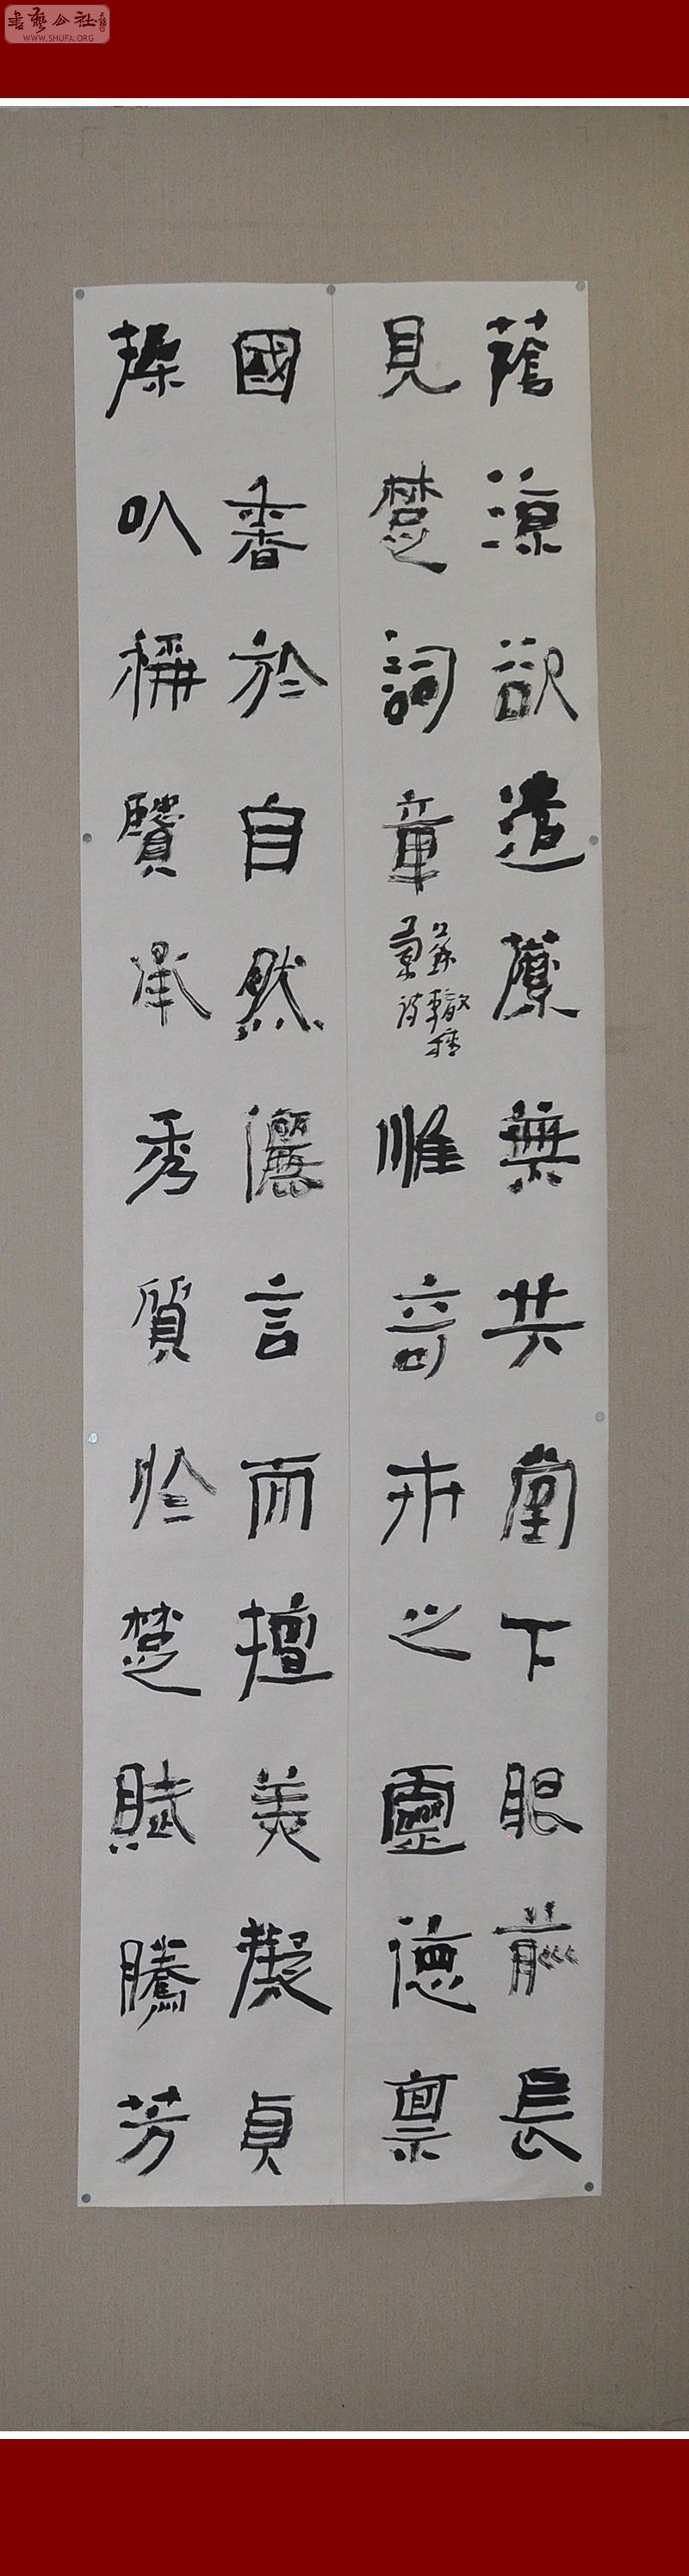 書藝公社
WWW.SHUFA.ORG
蔭涼欲遣蘼蕪共堂下眼前長
見楚詞章
蘇轍種
蘭詩
惟奇卉之靈德稟
國香於自然儷言而擅美擬貞
操以稱賢承秀質於楚賦騰芳